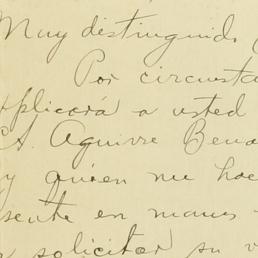 Muy distinguido
Por circunsta
plicará a usted
A. Aguirre Bena
y quien me hac
sente en manos
solicitar su v